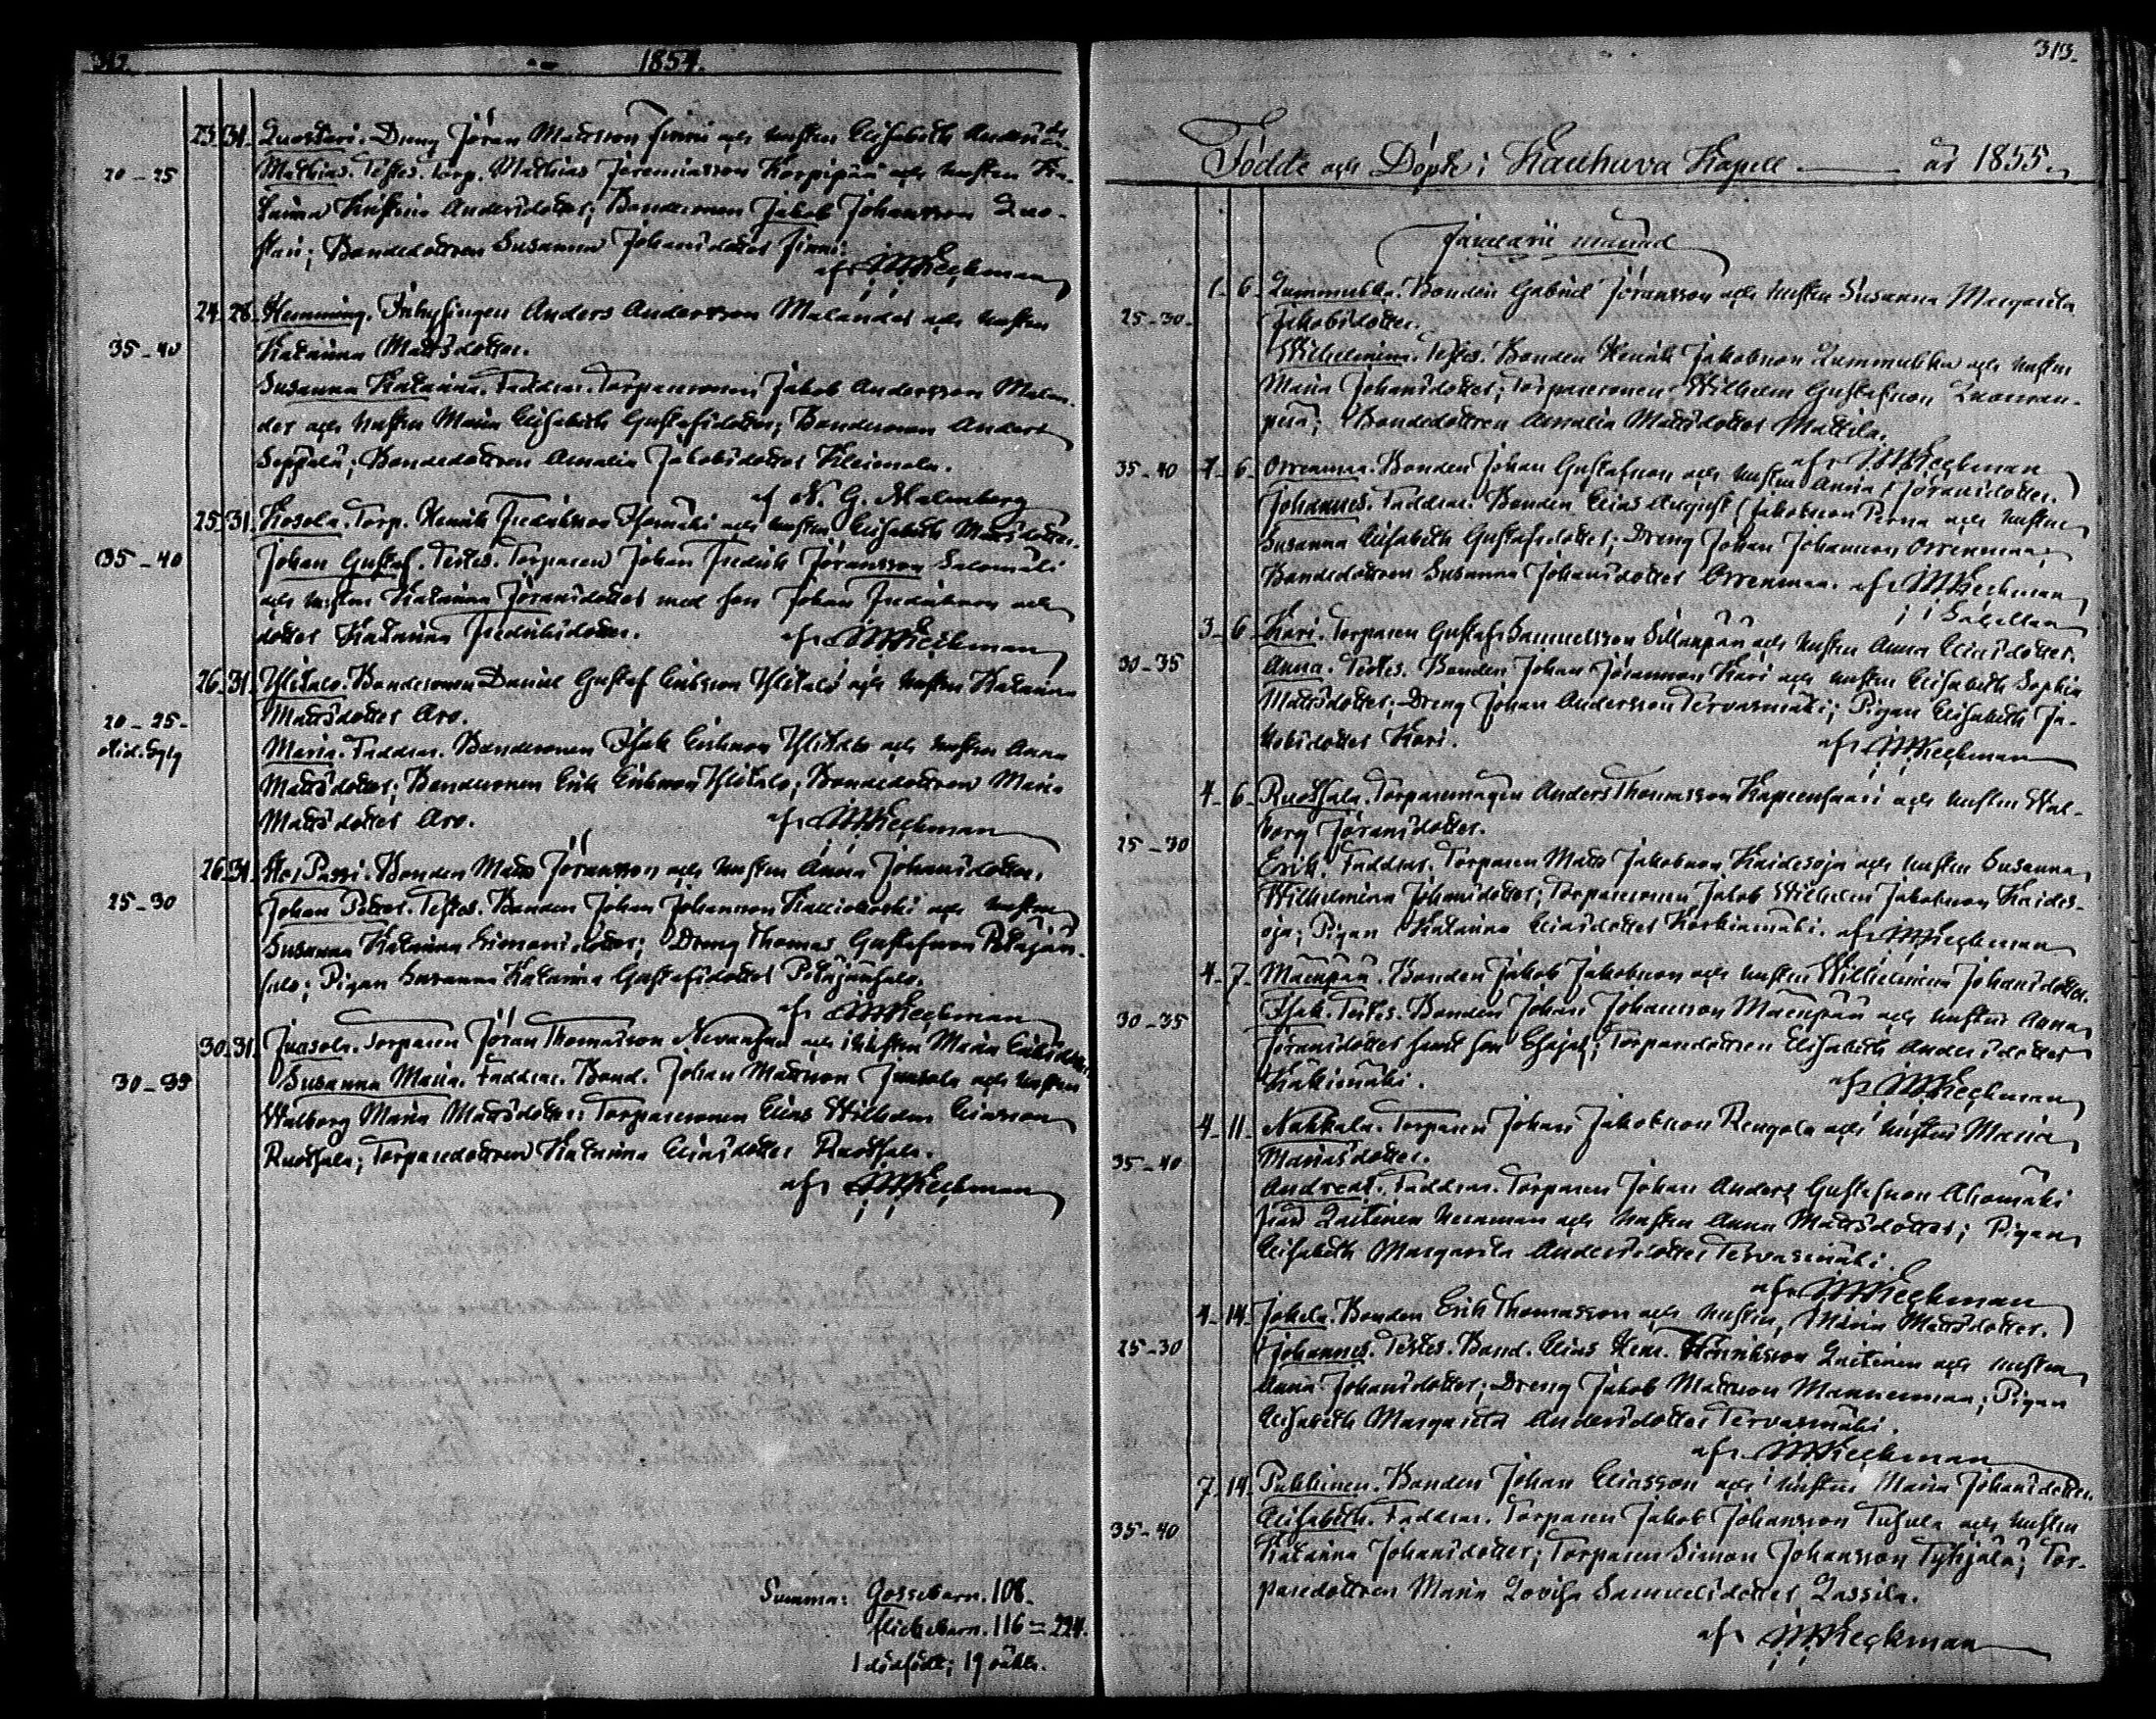 312.
1854.
23. 31. Luostari. Dreng Jöran Mattsson Finni och hustru Elisabeth Anders dr
20-25 Mathias. Testes. Torp. Mathias Jeremiasson Korpipää och hustru Ka-
tarina Anders dotter; Bondesonen Jakob Johansson Luo-
stari; Bondedottren Susanna Johansdotter Finni.
af MKeckman
24. 28. Hemming. Inhysingen Anders Andersson Malander och hustru
35-40 Katarina Mattsdotter.
Susanna Katarina. Faddrar. Torparesonen Jakob Andersson Malan-
der och hustru Maria Elisabeth Gustafsdotter; Bondesonen Anders
Seppälä; Bondedottren Amalia Jakobsdotter Kleimola.
af N. G. Malmberg
25. 31. Kosola. Torp. Henrik Fredriksson Isomäki och hustru Elisabeth Mattsdotter.
35-40 Johan Gustaf. Testes. Torparen Johan Fredrik Jöransson Salomäki
och hustru Katarina Jöransdotter med son Johan Fredriksson och
dotter Katarina Fredriksdotter. af MKeckman
26. 31. Ylitalo. Bondesonen Daniel Gustaf Eriksson Ylitalo och hustru Katarina
20-25- Mattsdotter Aro.
Maria. Faddrar. Bondesonen Isak Eriksson Ylitalo och hustru Anna
Mattsdotter; Bondesonen Erik Eriksson Ylitalo; Bondedottren Maria
Mattsdotter Aro. af MKeckman
26. 31. Passi. Bonden Matts Jöransson och hustru Anna Johansdotter.
25-30 Johan Petter. Testes. Bonden Johan Johansson och hustru
Susanna Katarina Simonsdotter; Dreng Thomas Gustafsson Petäjän-
salo; Pigan Susanna Katarina Gustafsdotter Petäjänsalo.
af MKeckman
30. 31. Juasola. Torparen Jöran Thomasson och hustru Maria Eriksdotter
30-35 Susanna Maria. Faddrar. Bond. Johan Mattsson Juasola och hustru
Walborg Maria Mattsdotter; Torparesonen Elias Wilhelm Eliasson
Ruotsala; Torparedottren Katarina Eliasdotter Ruotsala.
af MKeckman
Summa: Gossebarn. 108.
flickebarn. 116 = 224.
1 dödfödt; 19 oäkta.
313.
Födde och Döpte i Kauhava Kapell. år 1855.
Januarii månad
1. 6. Lummukka. Bonden Gabriel Jöransson och hustru Susanna Margareta
25-30- Jakobsdotter.
Wilhelmina. Testes. Bonden Henrik Jakobsson Lummukka och hustru
Maria Johansdotter; Torparesonen Wilhelm Gustafsson Luoman-
perä; Bondedottren Amalia Mattsdotter Mattila.
af MKeckman
35-40 6. Orrenmaa. Bonden Johan Gustafsson och hustru Anna Jöransdotter.
Johannes. Faddrar. Bonden Elias August Jakobsson Perna och hustru
Susanna Elisabeth Gustafsdotter; Dreng Johan Johansson Orrenmaa;
Bondedottren Susanna Johansdotter Orrenmaa. af MKeckman
3. 6. Kari. Torparen Gustaf Samuelsson Sillanpää och hustru Anna Eliasdotter.
30-35 Anna. Testes. Bonden Johan Jöransson Kari och hustru Elisabeth Sophia
Mattsdotter; Dreng Johan Andersson Tervasmäki; Pigan Elisabeth Ja-
kobsdotter Kari. af MKeckman
4. 6. Ruotsala. Torparemågen Anders Thomasson och hustru Wal-
borg Jöransdotter.
25-30 Erik. Faddrar. Torparen Matts Jakobsson Kaidesoja och hustru Susanna
Wilhelmina Johansdotter; Torparesonen Jakob Wilhelm Jakobsson Kaides-
oja; Pigan Katarina Eliasdotter Korkiamäki. af MKeckman
4. 7. Mäenpää. Bonden Jakob Jakobsson och hustru Wilhelmina Johansdotter.
30-35 Isak. Testes. Bonden Johan Johansson Mäenpää och hustru Anna
Jöransdotter samt son Esajas; Torparedottren Elisabeth Andersdotter
Käkimäki. af MKeckman
4. 11. Nahkala. Torparen Johan Jakobsson Rengola och hustru Maria
35-40 Mattsdotter.
Andreas. Faddrar. Torparen Johan Anders Gustafsson Ahomäki
från Laitinen hemman och hustru Anna Mattsdotter; Pigan
Elisabeth Margareta Andersdotter Tervasmäki.
af MKeckman
4. 14. Jokela. Bonden Erik Thomasson och hustru Maria Mattsdotter.
25-30 Johannes. Testes. Bond. Elias Henriksson Laitinen och hustru
Anna Johansdotter; Dreng Jakob Mattsson Mannermaa; Pigan
Elisabeth Margareta Andersdotter Tervasmäki.
af MKeckman
7. 14. Pukkinen. Bonden Johan Eliasson och hustru Maria Johansdotter
35-40 Elisabeth. Faddrar. Torparen Jakob Johansson och hustru
Katarina Johansdotter; Torparen Simon Johansson Tyhjälä; Tor-
paredottren Maria Lovisa Samuelsdotter Lassila.
af MKeckman